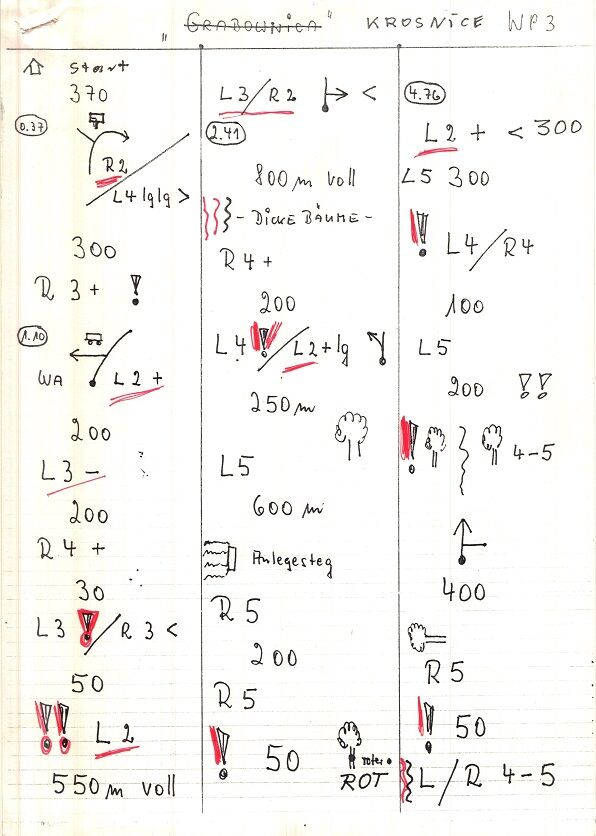 " Grabownica " KROSNICE WP3
Start
370
0.37
R2
L4 lg lg >
300
R 3 + !
1.10
WA L 2 +
200
L 3 -
200
R 4 +
30
L 3 ! / R 3 <
50
!! L 2
550 m voll
L 3 / R 2 <
2.41
800 m voll
- DICKE BÄUME -
R 4 +
200
L 4 ! / L 2 + lg
250 m
L 5
600 m
Anlegesteg
R 5
200
R 5
! 50
roter
ROT
4.76
L 2 + < 300
L 5 300
! L 4 / R 4
100
L 5
200 !!
! 4-5
400
R 5
! 50
L / R 4-5